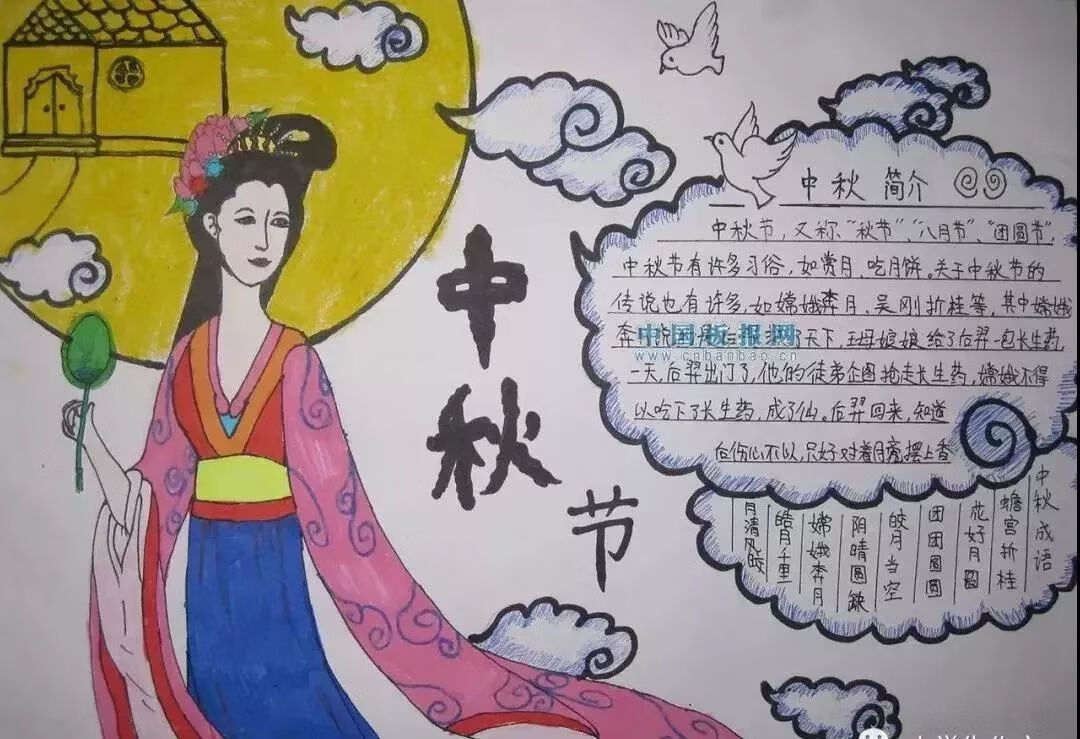 中秋节
中秋 简介
中秋节,又称"秋节"、"八月节"、"团圆节",
中秋节有许多习俗,如赏月、吃月饼。关于中秋节的
传说也有许多,如嫦娥奔月、吴刚折桂等,其中嫦娥
奔 了天下,王母娘娘给了后羿一包长生药
一天,后羿出门了,他的徒弟企图抢走长生药,嫦娥不得
以吃下了长生药,成了仙。后羿回来,知道
后伤心不以,只好对着月亮摆上香
中国板报网
www.cnbanbao.cn
中秋成语
蟾宫折桂
花好月圆
团团圆圆
皎月当空
阴晴圆缺
嫦娥奔月
皓月千
月清风皎